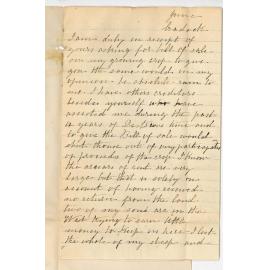 June
Cradock
I am duly in receipt of
yours asking for bill of sale
on my growing crop to give
you the same would in my
opinion be absolute ruin to
me. I have others creditors
besides yourself who have
assisted me during the past
4 years of time and
to give the Bill of sale would
shut those out of any participation
of proceeds of the crop I know
the arrears of rent are very
large but that is solely on
account of having received
no return from the land
two of my sons are in the
West trying to earn little
money to keep us here I lost
the whole of my sheep and